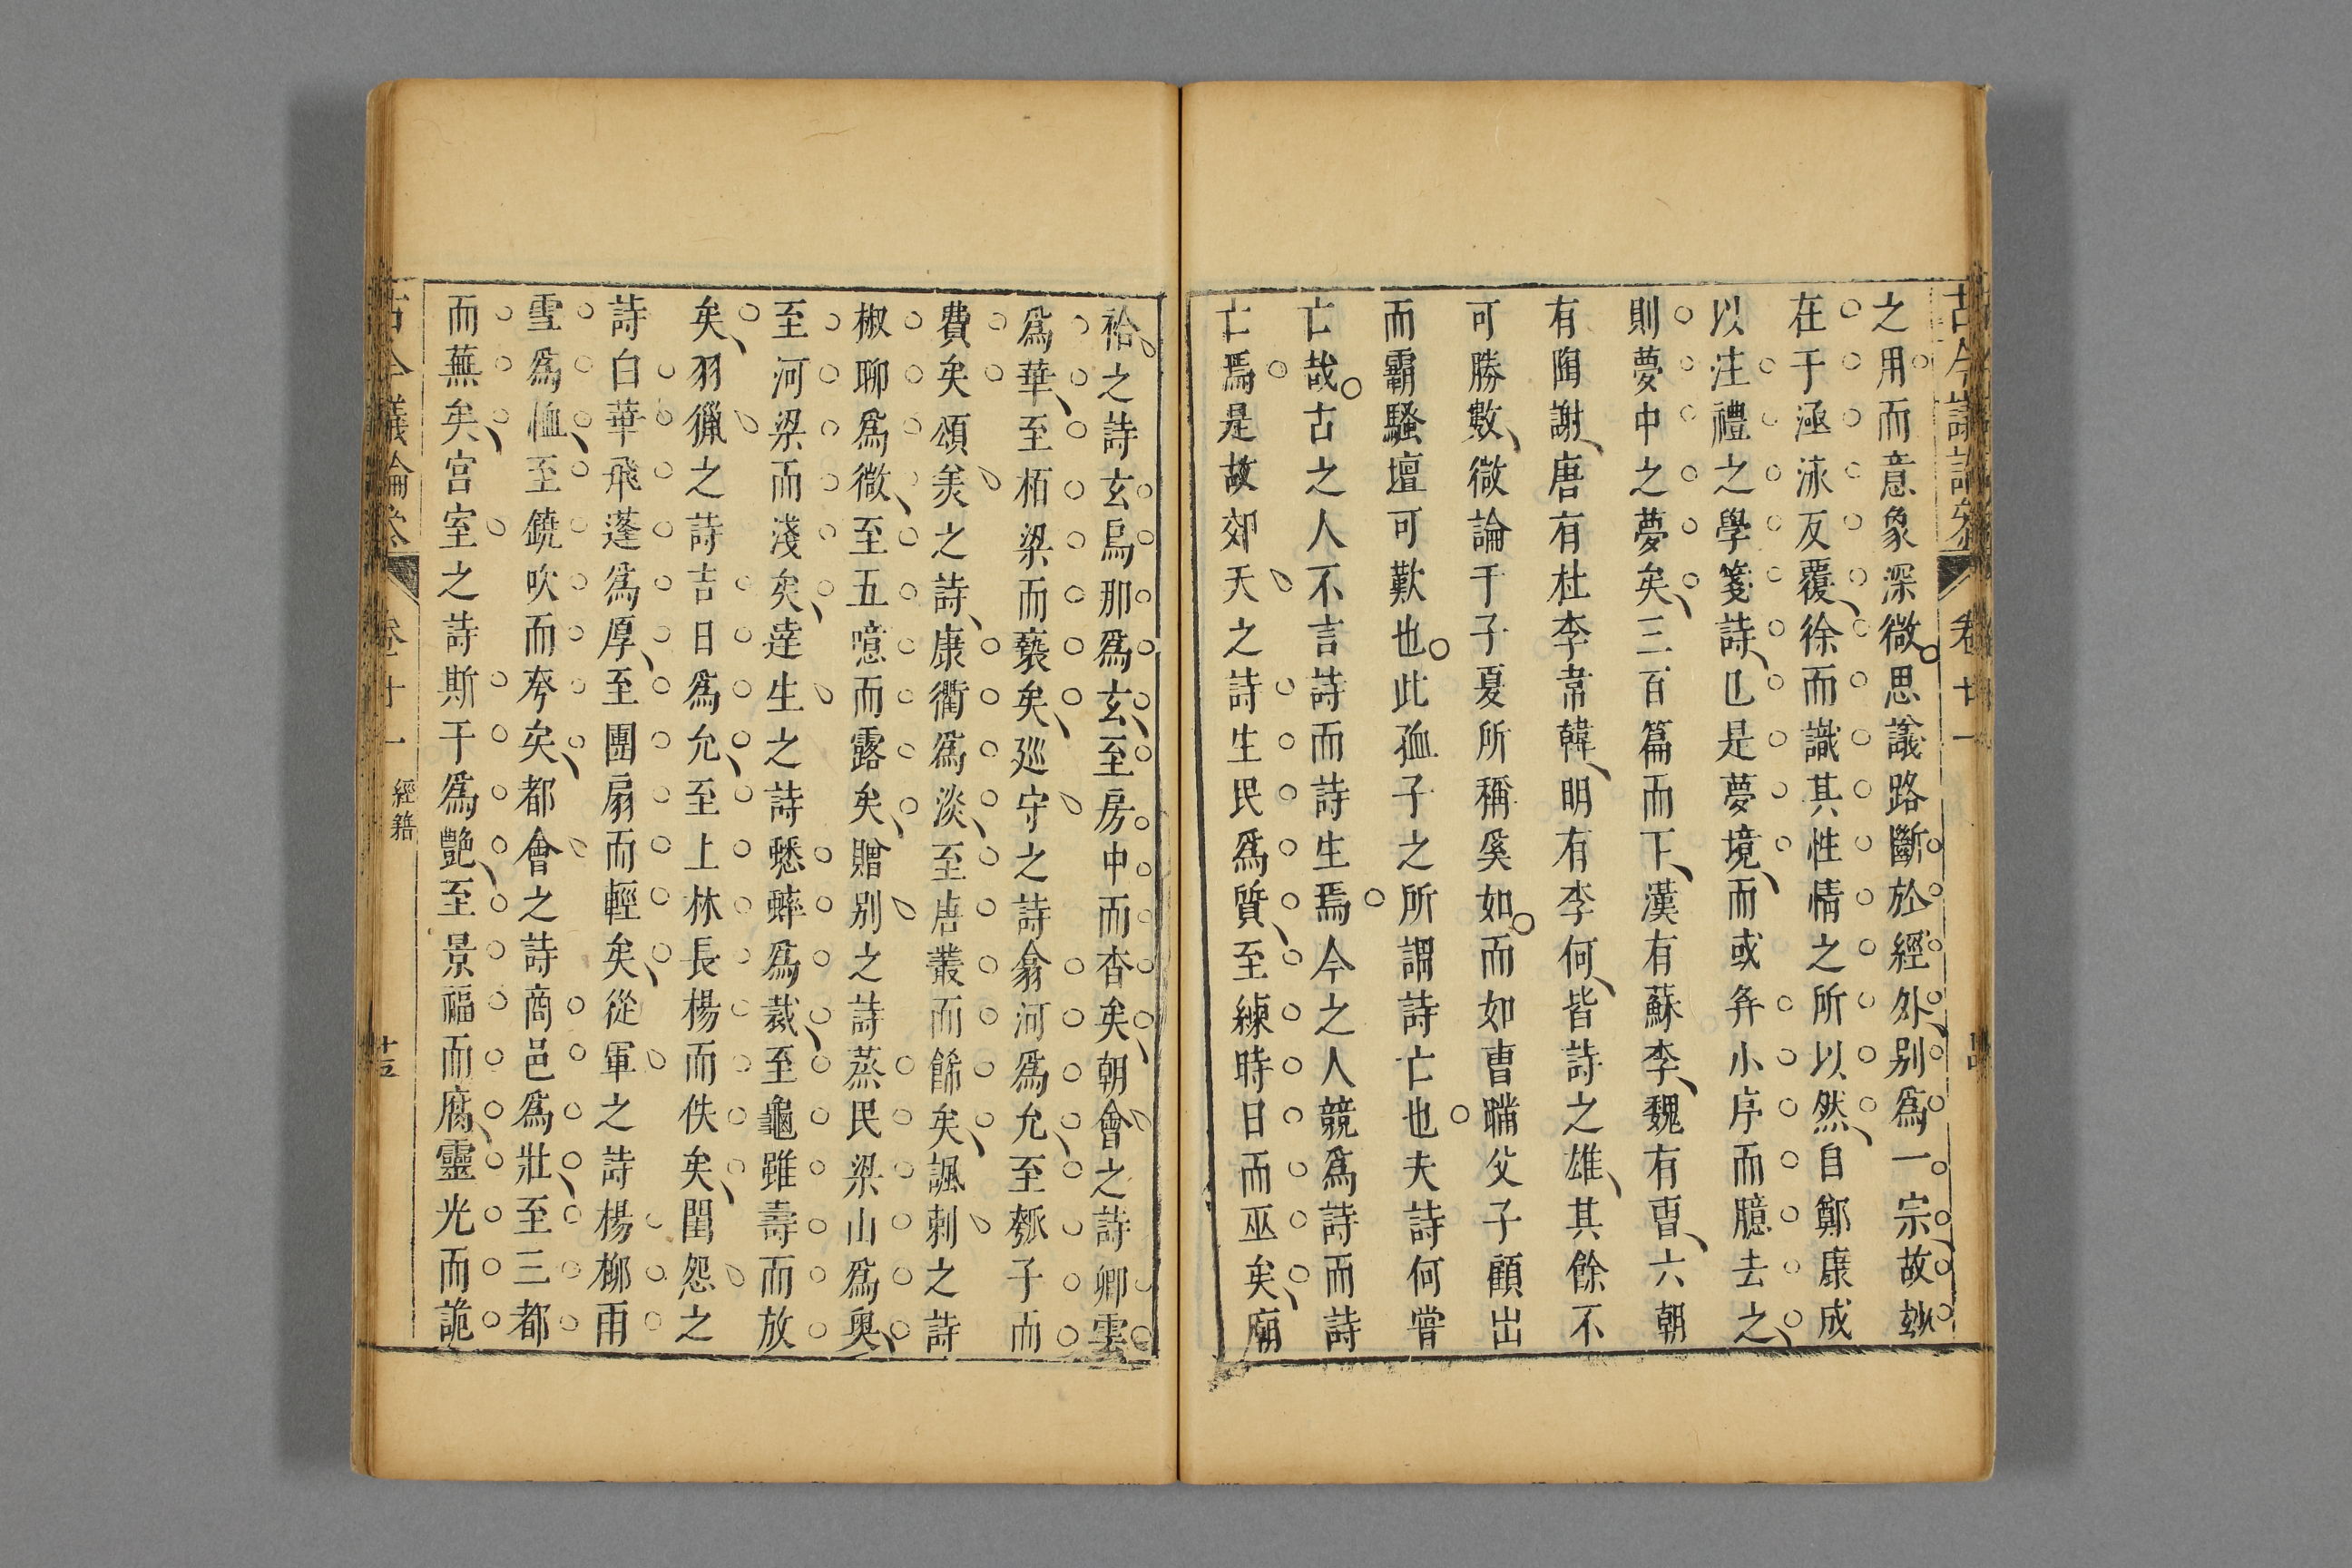 古今議論參 卷廿一
之用而意象深微思議路斷於經外别爲一宗故玅
在于涵泳反覆徐而識其性情之所以然自鄭康成
以注禮之學箋詩已是夢境而或弁小序而臆去之
則夢中之夢矣三百篇而下漢有蘇李魏有曹六朝
有陶謝唐有杜李韋韓明有李何皆詩之雄其餘不
可勝數微論于子夏所稱奚如而如曹瞞父子顧出
而霸騷壇可歎也此孤子之所謂詩亡也夫詩何嘗
亡哉古之人不言詩而詩生焉今之人競爲詩而詩
亡焉是故郊天之詩生民爲質至練時日而巫矣廟
祫之詩玄鳥那爲玄至房中而杳矣朝會之詩卿雲
爲華至栢梁而褻矣廵守之詩翕河爲允至瓠子而
費矣頌美之詩康衢爲淡至唐叢而餙矣諷刺之詩
椒聊爲微至五噫而露矣贈别之詩蒸民梁山爲奥
至河梁而淺矣達生之詩蟋蟀爲裁至龜雖壽而放
矣羽獵之詩吉日爲允至上林長楊而佚矣閨怨之
詩白華飛蓬爲厚至團扇而輕矣從軍之詩楊柳雨
雪爲恤至鐃吹而夸矣都會之詩商邑爲壯至三都
而蕪矣宫室之詩斯干爲艶至景福而腐靈光而詭
古今議論參 卷廿一 經籍